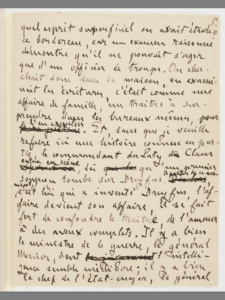 quel esprit superficiel on avait étudié
ce bordereau, car un examen raisonné
démontre qu'il ne pouvait s'agir
que d'un officier de troupe. On cher-
chait donc dans la maison, on exami-
nait les écritures, c'était comme une
affaire de famille, un traître à sur-
prendre dans les bureaux mêmes, pour
l'en expulser. Et, sans que je veuille
refaire ici une histoire connue en par-
tie, le commandant du Paty de Clam
entre en scène, dès qu'un premier
soupçon tombe sur Dreyfus. A partir de ce moment,
c'est lui qui a inventé Dreyfus, l'af-
faire devient son affaire, il se fait
fort de confondre le traître, de l'amener
à des aveux complets. Il y a bien
le ministre de la guerre, le général
Mercier, dont l'intelli-
gence semble médiocre; il y a bien
le chef de l'état-major, le général